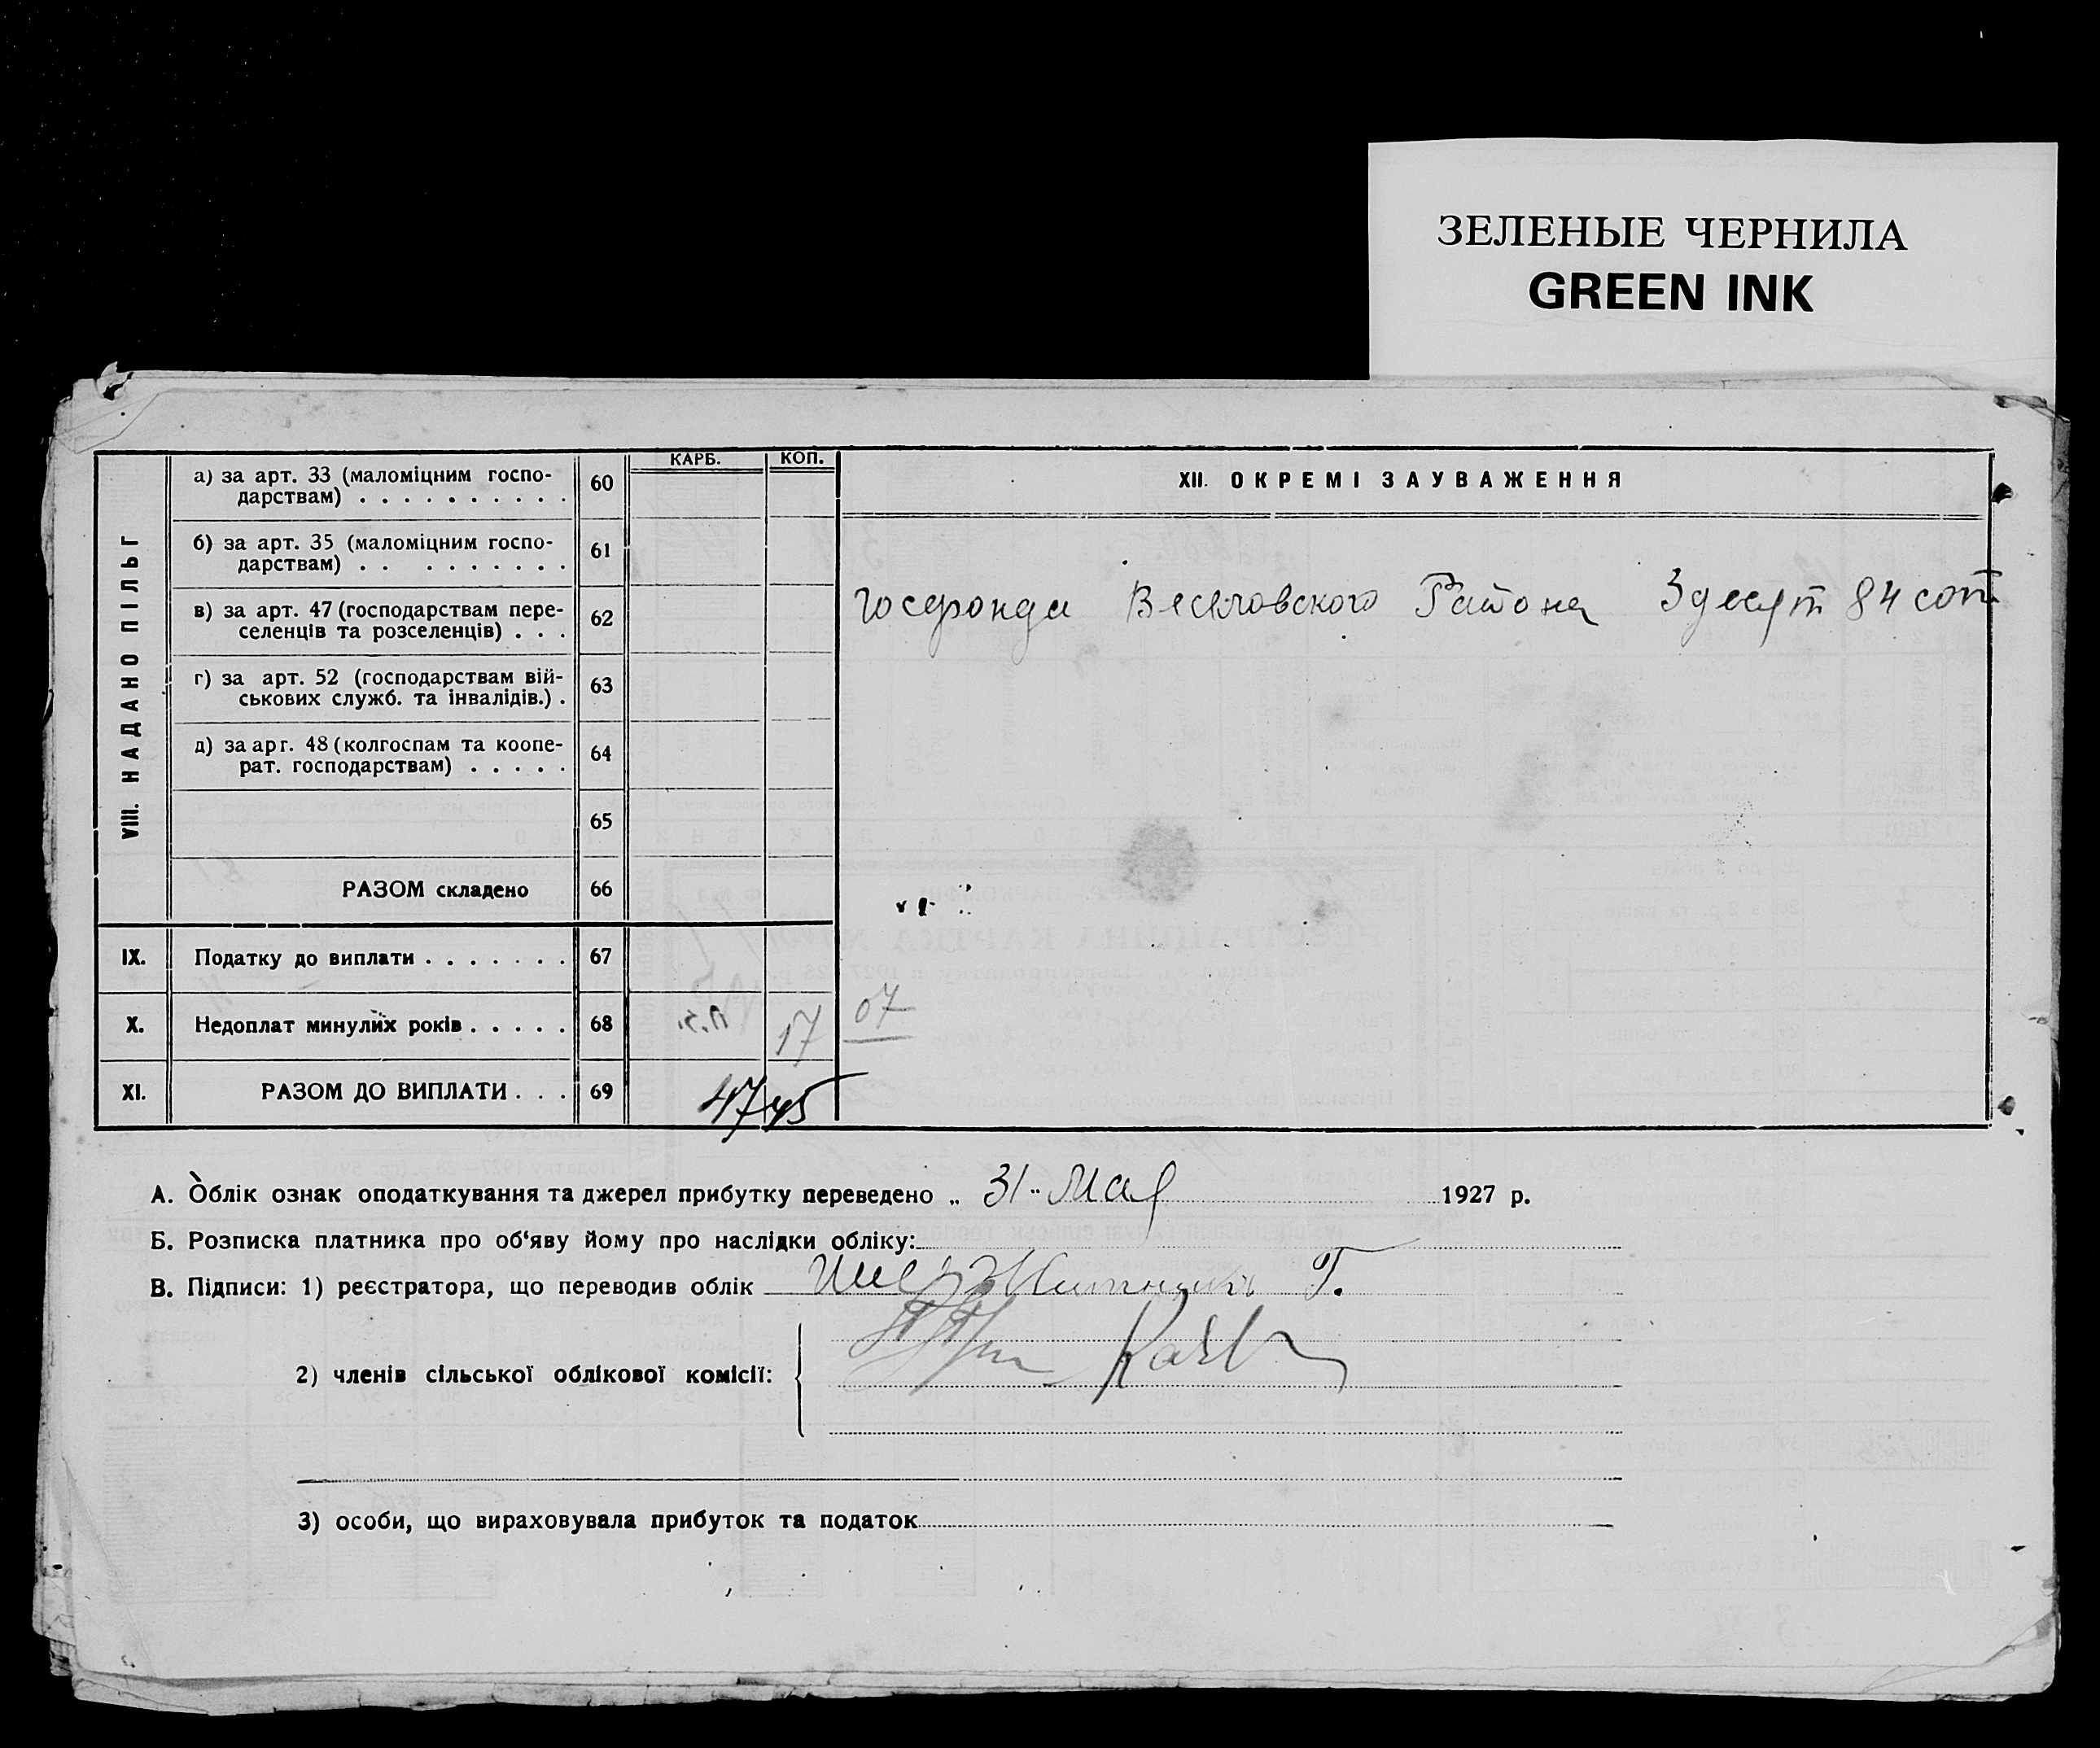 ЗЕЛЕНЫЕ ЧЕРНИЛА
GREEN INK
КАРБ. КОП.
XII. ОКРЕМІ ЗАУВАЖЕННЯ
VIII. НАДАНО ПІЛЬГ
а) за арт. 33 (маломіцним госпо-
дарствам) . . . . . . . . . . 60
б) за арт. 35 (маломіцним госпо-
дарствам) . . . . . . . . . 61
Госфонда Веселовского Района 3 десят 84 сот
в) за арт. 47 (господарствам пере-
селенців та розселенців) . . . 62
г) за арт. 52 (господарствам вій-
ськових служб. та інвалідів.) . 63
д) за арг. 48 (колгоспам та коопе-
рат. господарствам) . . . . . 64
65
РАЗОМ складено 66
IX. Податку до виплати . . . . . . . 67
X. Недоплат минулих років . . . . . 68 17 07
XI. РАЗОМ ДО ВИПЛАТИ . . . 69 47 45
А. Облік ознак оподаткування та джерел прибутку переведено „ 31 " Мая 1927 р.
Б. Розписка платника про об‘яву йому про наслідки обліку:
В. Підписи: 1) реєстратора, що переводив облік Г.
2) членів сільської облікової комісії:
3) особи, що вираховувала прибуток та податок